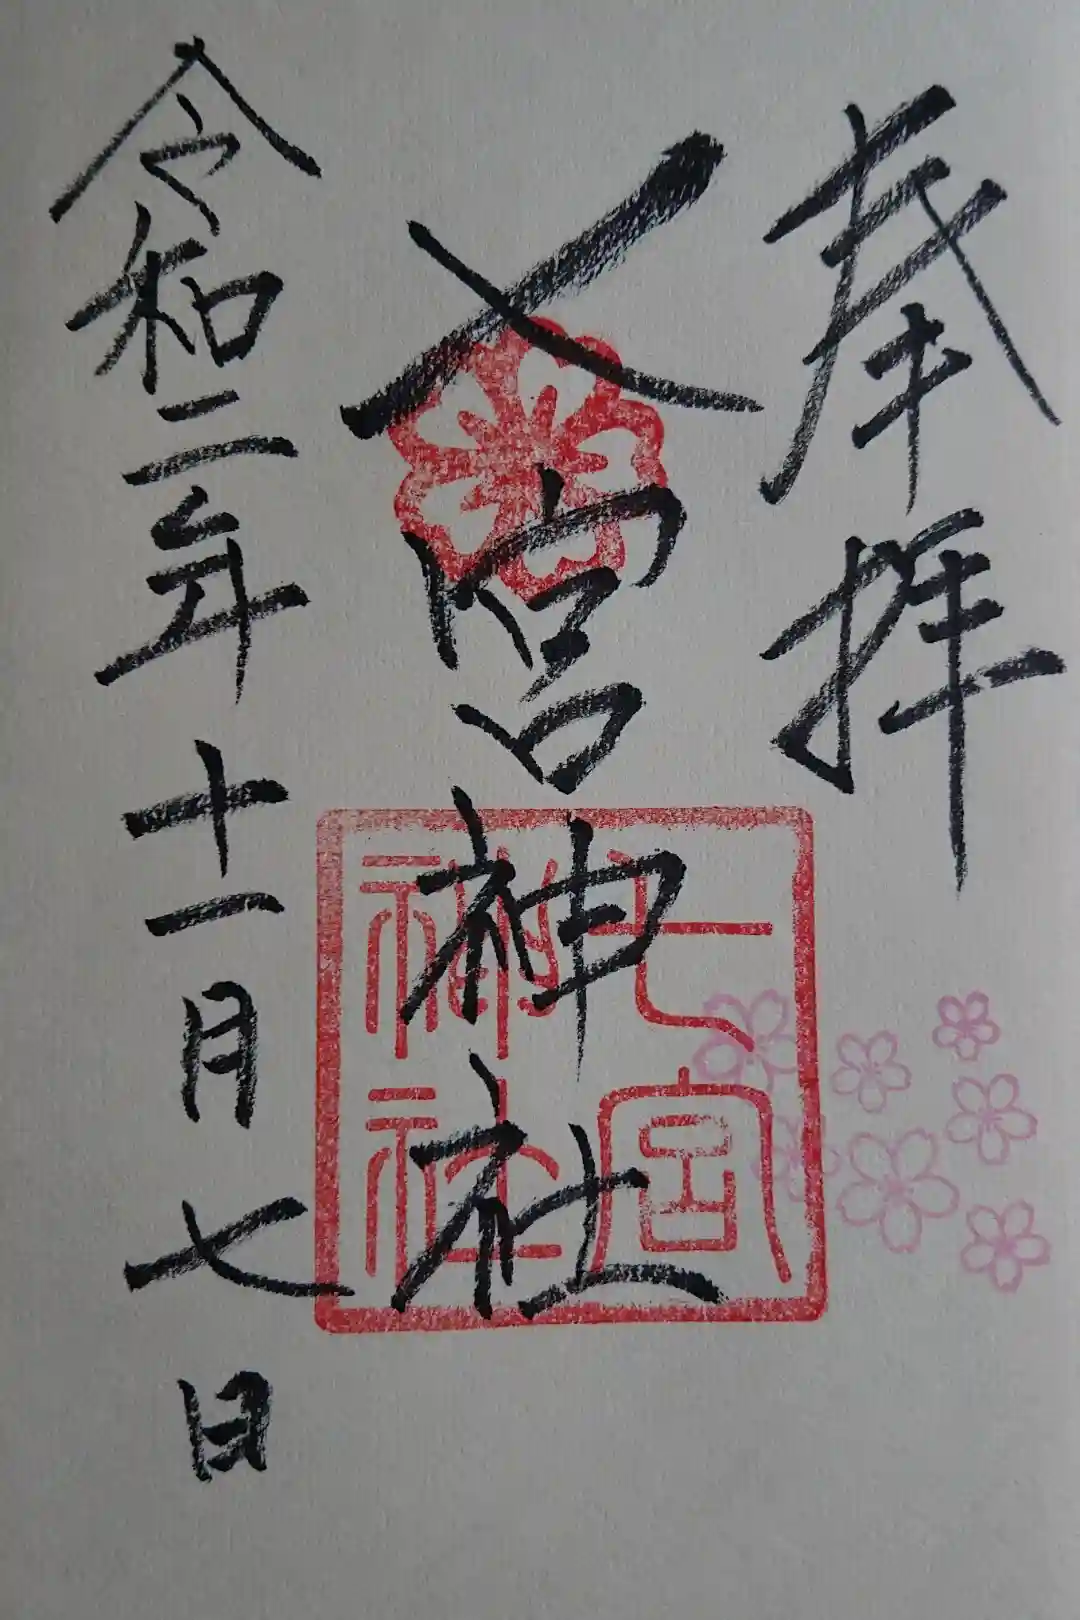 奉拝
七宮神社
七宮
神社
令和二年十一月七日